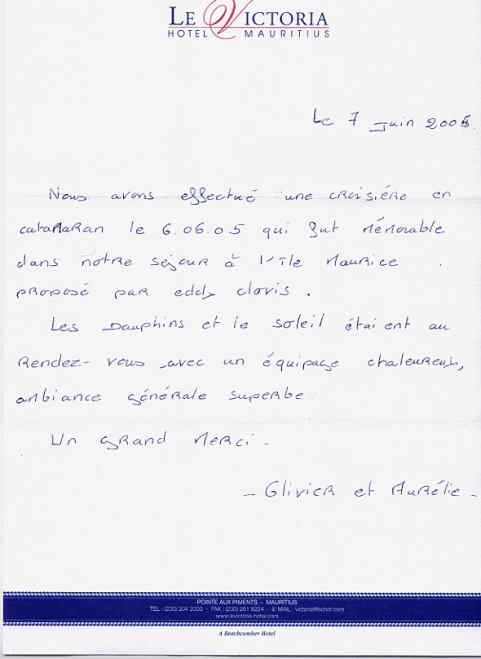 LE VICTORIA
HOTEL MAURITIUS
Le 7 Juin 2005.
Nous avons effectué une croisière en
catamaran le 6.06.05 qui fut mémorable
dans notre séjour à l'île Maurice.
proposé par eddy clovis.
Les Dauphins et le soleil étaient au
Rendez-vous avec un équipage chaleureux,
ambiance générale superbe
Un grand Merci.
- Olivier et Aurélie -
POINTE AUX PIMENTS - MAURITIUS
TEL : (230) 204 2000 - FAX : (230) 261 8224 - E MAIL :
www.levictoria-hotel.com
A Beachcomber Hotel